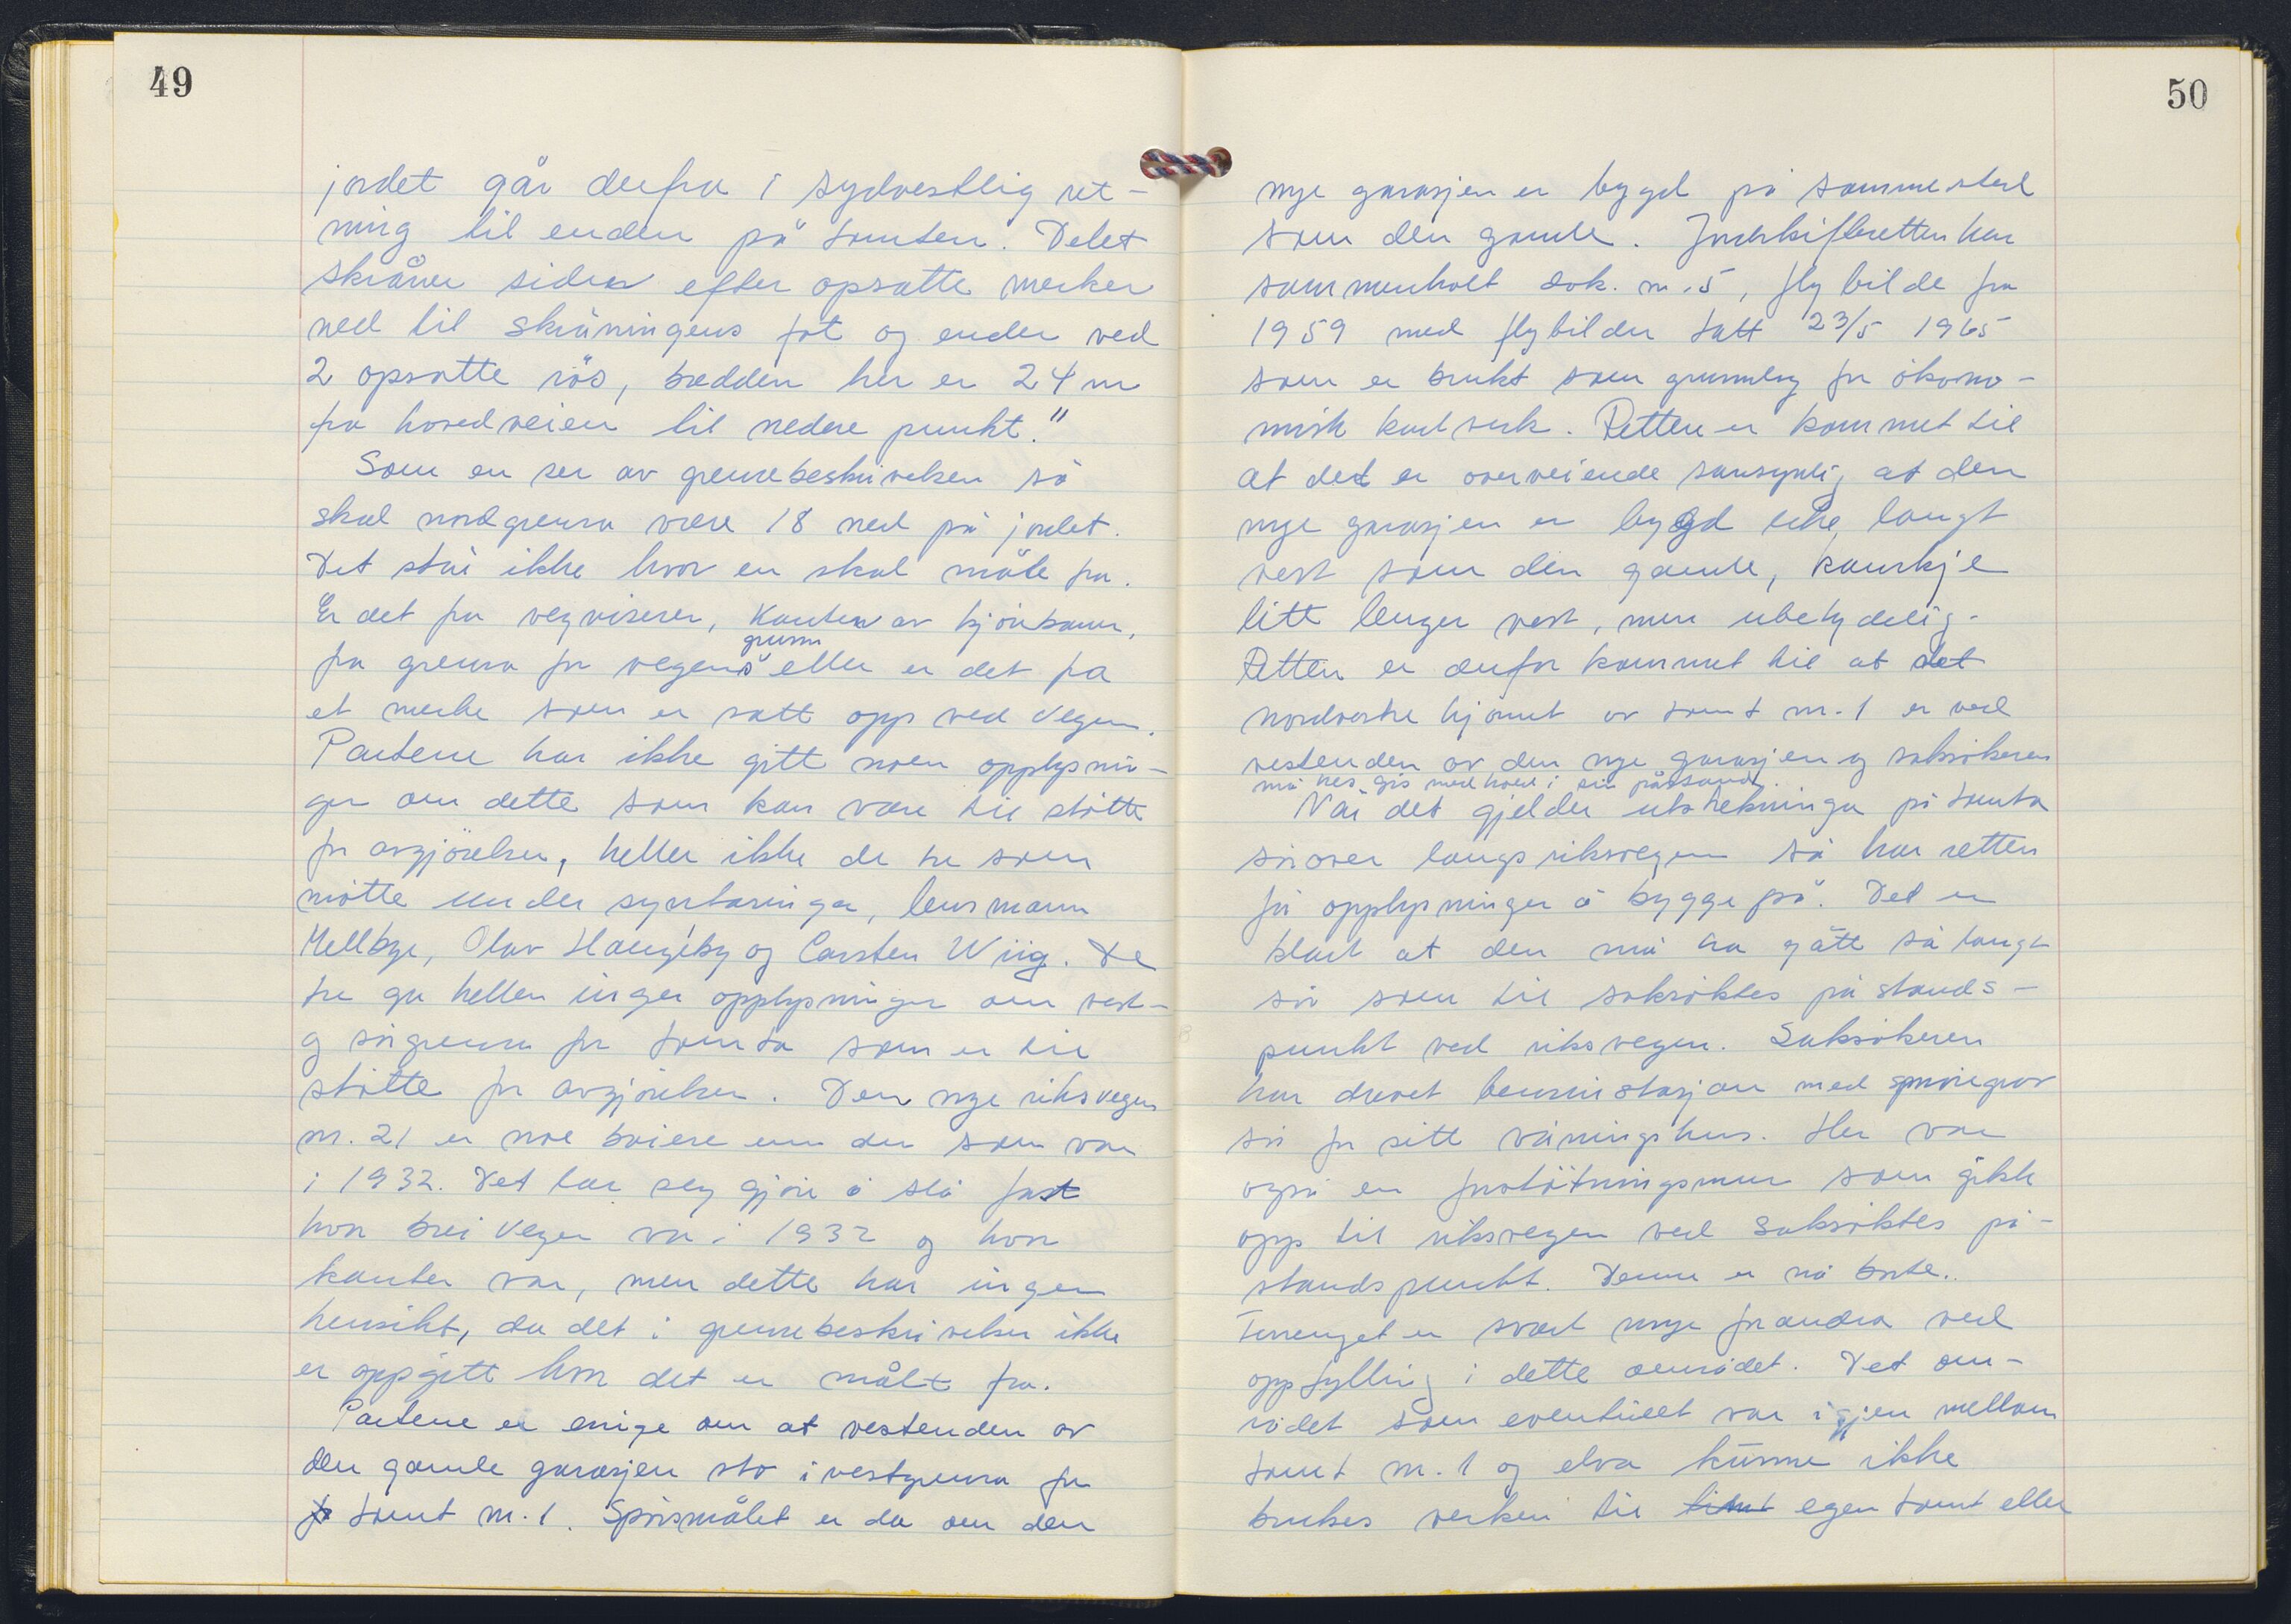 49
jordet går derfra i sydvestlig ret-
ning til enden på tomten. Delet
skråner siden efter opsatte merker
ned til skråningens fot og ender ved
2 opsatte rös, bredden her er 24 m
fra hovedveien til nedere punkt."
Som en ser av grensebeskrivelsen så
skal nordgrensa være 18 ned på jordet.
Det står ikke hvor en skal måle fra.
Er det fra vegviseren, kanten av kjörbanen,
fra grensa for vegens grunn eller er det fra
et merke som er satt opp ved vegen.
Partene har ikke gitt noen opplysnin-
ger om dette som kan være til stötte
for avgjörelsen, heller ikke de tre som
mötte under synfaringa, lensmann
Mellbye, Olav Haugeby og Carsten Wiig. De
tre ga heller ingen opplysninger om vest-
og sörgrensa for tomta som er til
stötte for avgjörelsen. Den nye riksvegen
nr. 21 er noe breiere enn den som var
i 1932. Det lar seg gjöre å slå fast
hvor brei vegen var i 1932 og hvor
kanten var, men dette har ingen
hensikt, da det i grensebeskrivelsen ikke
er oppgitt hvor det er målt fra.
Partene er enige om at vestenden av
den gamle garasjen sto i vestgrensa for
tomt nr. 1. Spörsmålet er da om den
50
nye garasjen er bygd på samme sted
som den gamle. Jordskifteretten har
sammenholt dok. nr. 5, flybilde fra
1959 med flybilder tatt 23/5 1965
som er brukt som grunnlag for ökono-
misk kartverk. Retten er kommet til
at det er overveiende sansynlig at den
nye garasjen er bygd like langt
vest som den gamle, kanskje
litt lenger vest, men ubetydelig.
Retten er derfor kommet til at det
nordvestre hjörnet av tomt nr. 1 er ved
vestenden av den nye garasjen og saksökeren
må her gis medhold i sin påstand.
Når det gjelder utstrekninga på tomta
sörover langs riksvegen så har retten
få opplysninger å bygge på. Det er
klart at den må ha gått så langt
sör som til saksöktes påstands-
punkt ved riksvegen. Saksökeren
har drevet bensinstasjon med smöregrav
sör for sitt våningshus. Her var
også en forstötningsmur som gikk
opp til riksvegen ved saksöktes på-
standspunkt. Denne er nå borte.
Terrenget er svært mye forandra ved
oppfylling i dette området. Det om-
rådet som eventuelt var igjen mellom
tomt nr. 1 og elva kunne ikke
brukes verken til egen tomt eller